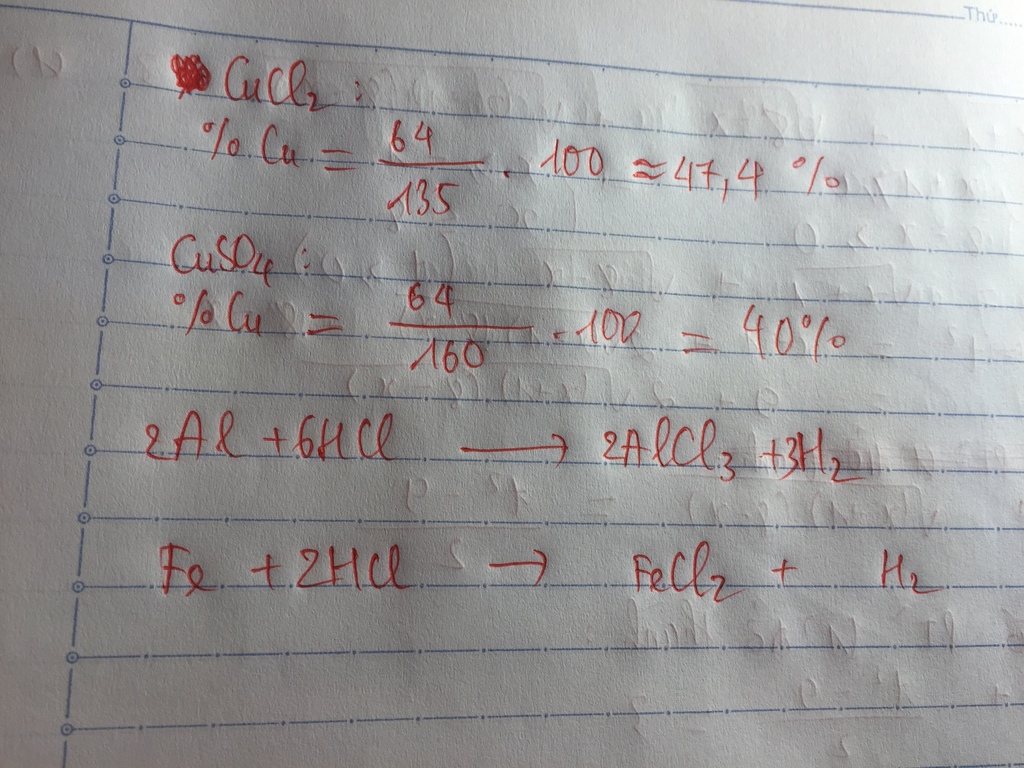 Thứ.....
CuCl₂ :
% Cu = 64/135 . 100 ≈ 47,4 %
CuSO₄ :
% Cu = 64/160 . 100 = 40%
2Al + 6HCl ⟶ 2AlCl₃ + 3H₂
Fe + 2HCl → FeCl₂ + H₂